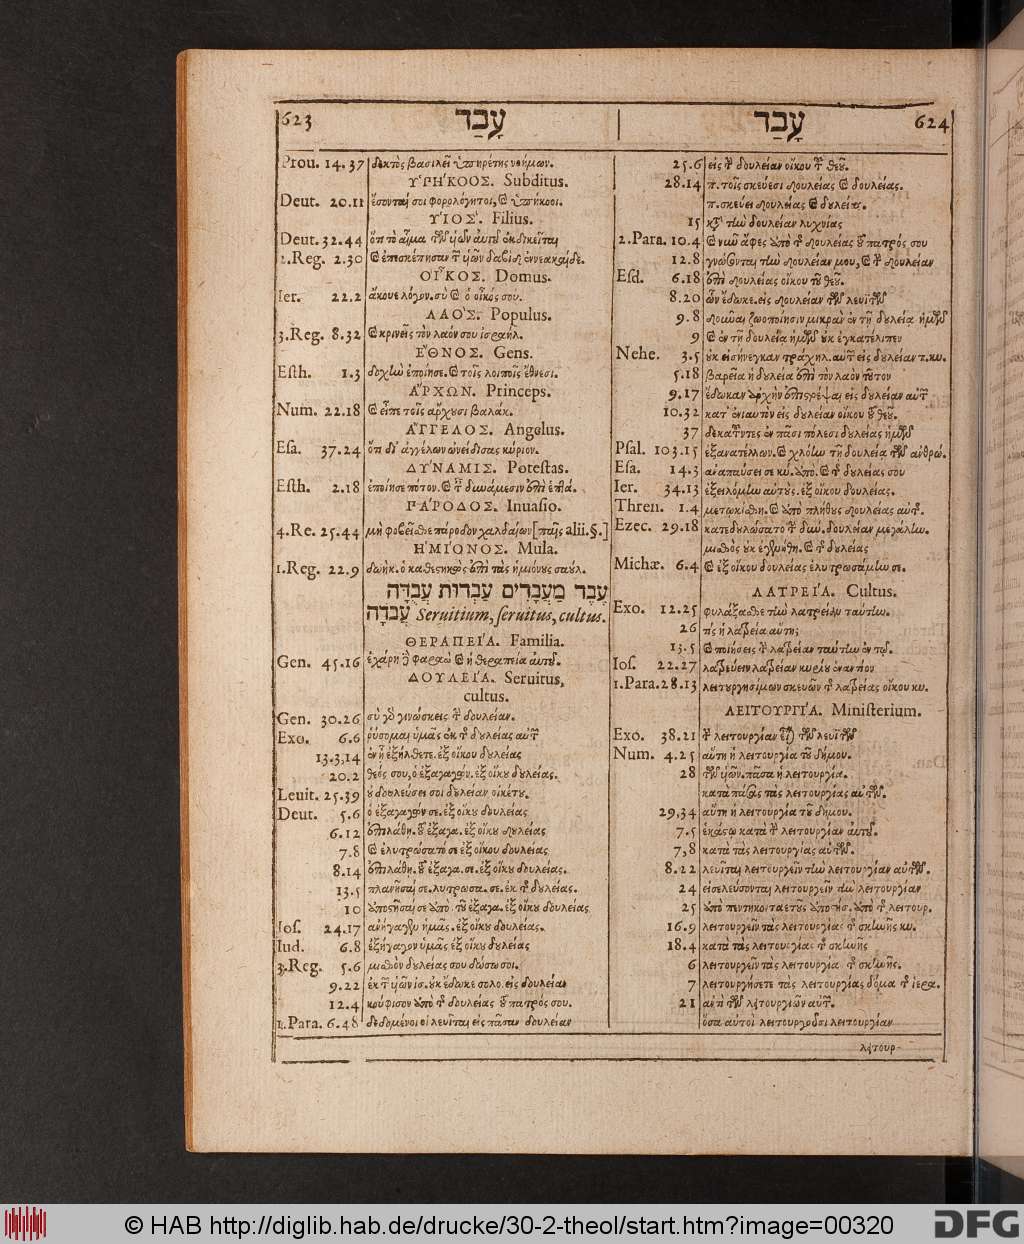 623 עָבַד
Prou. 14.37 δεκτὸς βασιλεῖ ὑπηρέτης νοήμων.
ΥΠΗΚΟΟΣ. Subditus.
Deut. 20.11 ἔσονταί σοι φορολόγητοι, καὶ ὑπήκοοι.
ΥΙΟΣ. Filius.
Deut. 32.44 ὅτι τὸ αἷμα τῶν υἱῶν αὐτοῦ ἐκδικεῖται
2.Reg. 2.30 καὶ ἐπεσκέπησαν τῶν υἱῶν δαβὶδ ἐννεακαίδε.
ΟΙΚΟΣ. Domus.
Ier. 22.2 ἄκουε λόγον. σὺ καὶ ὁ οἶκός σου.
ΛΑΟΣ. Populus.
3.Reg. 8.32 καὶ κρινεῖς τὸν λαόν σου ἰσραήλ.
ΕΘΝΟΣ. Gens.
Esth. 1.3 δοχὴν ἐποίησε. καὶ τοῖς λοιποῖς ἔθνεσι.
ΑΡΧΩΝ. Princeps.
Num. 22.18 καὶ εἶπε τοῖς ἄρχουσι βαλάκ.
ΑΓΓΕΛΟΣ. Angelus.
Esa. 37.24 ὅτι δι' ἀγγέλων ὠνείδισας κύριον.
ΔΥΝΑΜΙΣ. Potestas.
Esth. 2.18 ἐποίησε πότον. καὶ τ. δυνάμεσιν ἐπὶ ἑπτά.
ΠΑΡΟΔΟΣ. Inuasio.
4.Re. 25.44 μὴ φοβεῖσθε πάροδον χαλδαίων [παῖς alii.§.]
ΗΜΙΟΝΟΣ. Mula.
1.Reg. 22.9 δωὴκ. ὁ καθεστηκὼς ἐπὶ τὰς ἡμιόνους σαούλ.
עֶבֶד מַעֲבָדִים עַבְדוּת עֲבֻדָּה
עֲבֹדָה Seruitium, seruitus, cultus.
ΘΕΡΑΠΕΙΑ. Familia.
Gen. 45.16 ἐχάρη δὲ φαραὼ καὶ ἡ θεραπεία αὐτοῦ.
ΔΟΥΛΕΙΑ. Seruitus,
cultus.
Gen. 30.26 σὺ γὰρ γινώσκεις τὴν δουλείαν.
Exo. 6.6 ῥύσομαι ὑμᾶς ἐκ τῆς δουλείας αὐτῶν
13.3,14 ἐν ᾗ ἐξήλθετε. ἐξ οἴκου δουλείας
20.2 θεός σου, ὁ ἐξαγαγών. ἐξ οἴκου δουλείας.
Leuit. 25.39 οὐ δουλεύσει σοι δουλείαν οἰκέτου.
Deut. 5.6 ὁ ἐξαγαγών σε. ἐξ οἴκου δουλείας
6.12 ἐπιλάθῃ. τοῦ ἐξαγα. ἐξ οἴκου δουλείας
7.8 καὶ ἐλυτρώσατό σε ἐξ οἴκου δουλείας
8.14 ἐπιλάθῃ. τοῦ ἐξαγα. σε. ἐξ οἴκου δουλείας.
13.5 πλανῆσαί σε. λυτρωσα. σε. ἐκ τῆς δουλείας.
10 ἀποστῆσαί σε ἀπὸ τοῦ ἐξαγα. ἐξ οἴκου δουλείας
Ios. 24.17 ἀνήγαγεν ἡμᾶς. ἐξ οἴκου δουλείας.
Iud. 6.8 ἐξήγαγον ὑμᾶς ἐξ οἴκου δουλείας
3.Reg. 5.6 μισθὸν δουλείας σου δώσω σοι.
9.22 ἐκ τῶν υἱῶν ἰσ. οὐκ ἔδωκε σολο. εἰς δουλείαν
12.4 κούφισον ἀπὸ τῆς δουλείας τοῦ πατρός σου.
1.Para. 6.48 δεδομένοι οἱ λευῖται εἰς πᾶσαν δουλείαν
עָבַד 624
25.6 εἰς τὴν δουλείαν οἴκου τοῦ θεοῦ.
28.14 π. τοῖς σκεύεσι δουλείας καὶ δουλείας.
π. σκεύει δουλείας καὶ δουλείας.
15 κατὰ τὴν δουλείαν λυχνίας
2.Para. 10.4 καὶ νῦν ἄφες ἀπὸ τῆς δουλείας τοῦ πατρός σου
12.8 γνώσονται τὴν δουλείαν μου, καὶ τὴν δουλείαν
Esd. 6.18 ἐπὶ δουλείας οἴκου τοῦ θεοῦ.
8.20 ὧν ἔδωκε. εἰς δουλείαν τῶν λευϊτῶν
9.8 δοῦναι ζωοποίησιν μικρὰν ἐν τῇ δουλείᾳ ἡμῶν
9 καὶ ἐν τῇ δουλείᾳ ἡμῶν οὐκ ἐγκατέλιπεν
Nehe. 3.5 οὐκ εἰσήνεγκαν τράχηλ. αὐτῶν εἰς δουλείαν τ. κυ.
5.18 βαρεῖα ἡ δουλεία ἐπὶ τὸν λαὸν τοῦτον
9.17 ἔδωκαν ἀρχὴν ἐπιστρέψαι εἰς δουλείαν αὐτῶν
10.32 κατ' ἐνιαυτὸν εἰς δουλείαν οἴκου τοῦ θεοῦ.
37 δεκατοῦντες ἐν πᾶσι πόλεσι δουλείας ἡμῶν
Psal. 103.15 ἐξανατέλλων. καὶ χλόην τῇ δουλείᾳ τῶν ἀνθρώ.
Esa. 14.3 ἀναπαύσει σε κυ. ἀπὸ. καὶ τῆς δουλείας σου
Ier. 34.13 ἐξειλόμην αὐτοὺς. ἐξ οἴκου δουλείας.
Thren. 1.4 μετῳκίσθη. καὶ ἀπὸ πλήθους δουλείας αὐτῆς.
Ezec. 29.18 κατεδουλώσατο τὴν δύν. δουλείαν μεγάλην.
μισθὸς οὐκ ἐγενήθη. καὶ τῆς δουλείας
Michæ. 6.4 καὶ ἐξ οἴκου δουλείας ἐλυτρωσάμην σε.
ΛΑΤΡΕΙΑ. Cultus.
Exo. 12.25 φυλάξασθε τὴν λατρείαν ταύτην.
26 τίς ἡ λατρεία αὕτη;
13.5 καὶ ποιήσεις τὴν λατρείαν ταύτην ἐν τῷ.
Ios. 22.27 λατρεύειν λατρείαν κυρίου ἐναντίον
1.Para. 28.13 λειτουργησίμων σκευῶν τῆς λατρείας οἴκου κυ.
ΛΕΙΤΟΥΡΓΙΑ. Ministerium.
Exo. 38.21 τὴν λειτουργίαν εἶναι τῶν λευϊτῶν
Num. 4.25 αὕτη ἡ λειτουργία τοῦ δήμου.
28 τῶν υἱῶν. πᾶσα ἡ λειτουργία.
κατὰ πάσας τὰς λειτουργίας αὐτῶν.
29,34 αὕτη ἡ λειτουργία τοῦ δήμου.
7.5 ἑκάστῳ κατὰ τὴν λειτουργίαν αὐτοῦ.
7,8 κατὰ τὰς λειτουργίας αὐτῶν.
8.22 λευῖται λειτουργεῖν τὴν λειτουργίαν αὐτῶν.
24 εἰσελεύσονται λειτουργεῖν τὴν λειτουργίαν
25 ἀπὸ πεντηκονταετοῦς ἀποστήσ. ἀπὸ τῆς λειτουρ.
16.9 λειτουργεῖν τὰς λειτουργίας τῆς σκηνῆς κυ.
18.4 κατὰ τὰς λειτουργίας τῆς σκηνῆς
6 λειτουργεῖν τὰς λειτουργίας τῆς σκηνῆς.
7 λειτουργήσετε τὰς λειτουργίας δόμα τῆς ἱερα.
21 ἀντὶ τῶν λειτουργιῶν αὐτῶν.
ὅσα αὐτοὶ λειτουργοῦσι λειτουργίαν
λειτουρ-
© HAB http://diglib.hab.de/drucke/30-2-theol/start.htm?image=00320
DFG